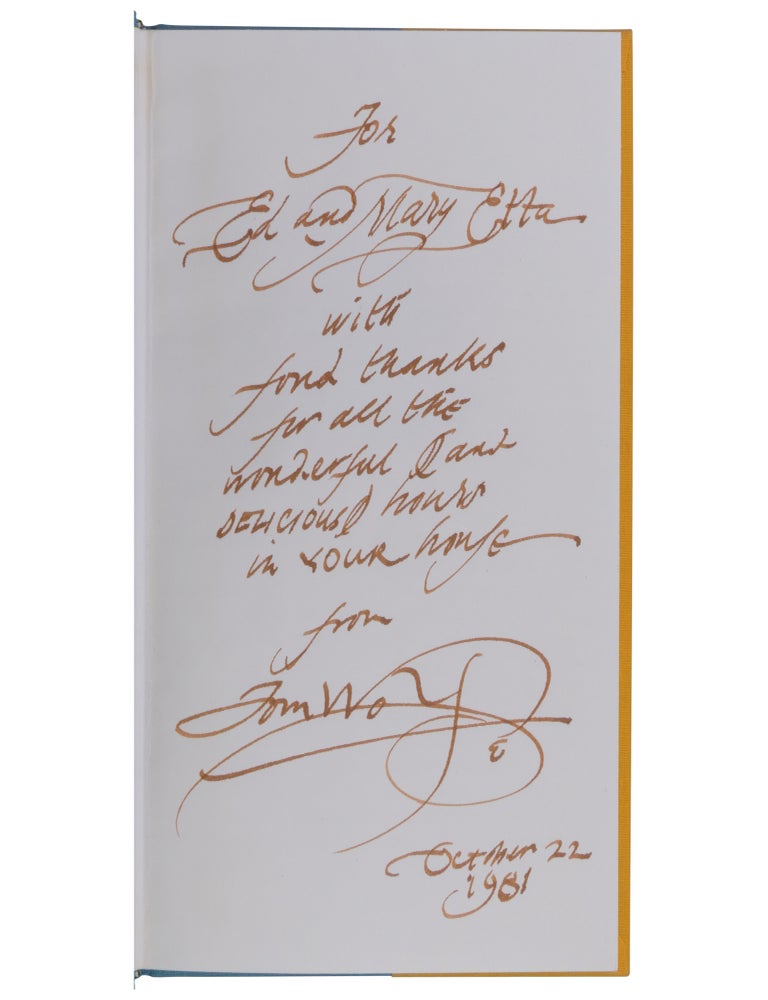 For
Ed and Mary Etta
with
fond thanks
for all the
wonderful (and
DELICIOUS) hours
in YOUR house
from
Tom Wolfe
October 22
1981